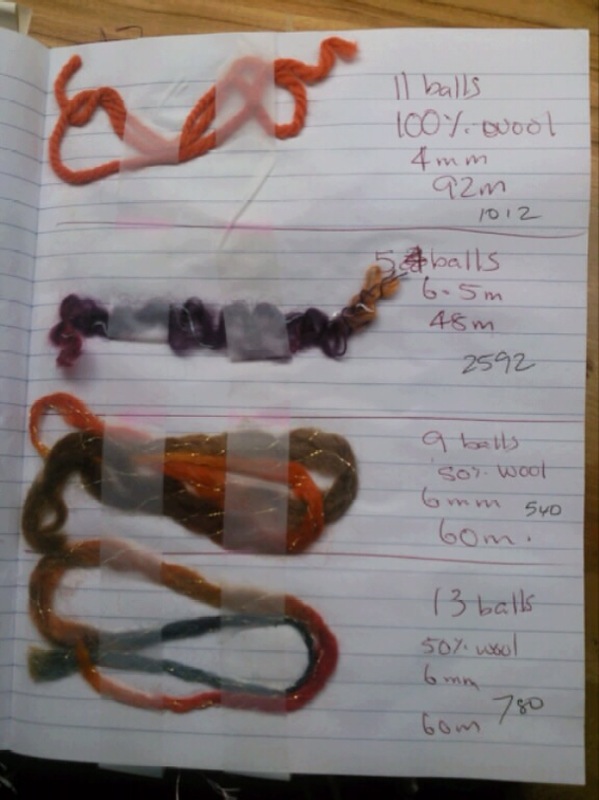 11 balls
100% wool
4mm
92m
1012
54 balls
6.5m
48m
2592
9 balls
50% wool
6mm 540
60m.
13 balls
50% wool
6mm
780
60m